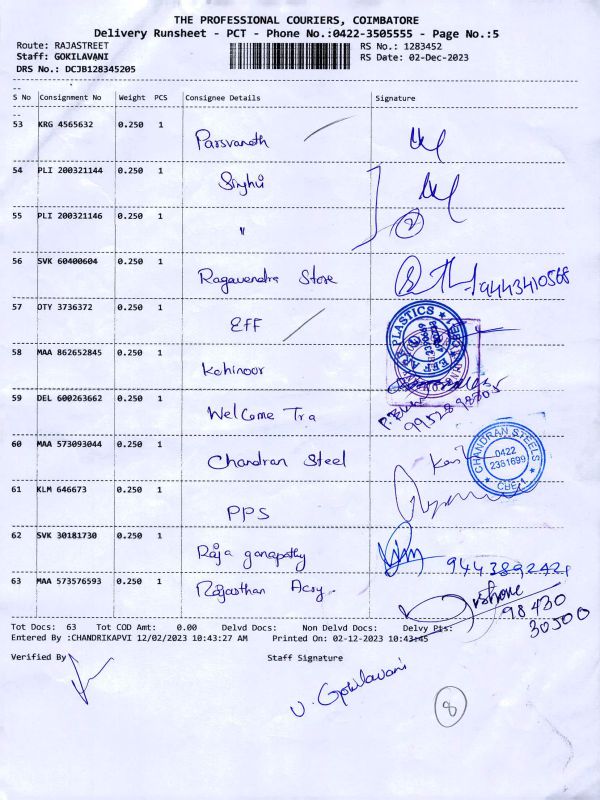 THE PROFESSIONAL COURIERS, COIMBATORE
Delivery Runsheet - PCT - Phone No.:0422-3505555 - Page No.:5
Route: RAJASTREET RS No.: 1283452
Staff: GOKILAVANI RS Date: 02-Dec-2023
DRS No.: DCJB128345205
S No Consignment No Weight PCS Consignee Details Signature
53 KRG 4565632 0.250 1 Parsvanath
54 PLI 200321144 0.250 1 Singhvi
2
55 PLI 200321146 0.250 1 "
56 SVK 60400604 0.250 1 Ragavendra Store 9443410568
57 OTY 3736372 0.250 1 EFF
EEF ARR PLASTICS
58 MAA 862652845 0.250 1 Kohinoor
59 DEL 600263662 0.250 1 Welcome Tra 9952898805
60 MAA 573093044 0.250 1 Chandran Steel
CHANDRAN STEELS
0422
2381699
CBE-1
61 KLM 646673 0.250 1 PPS
62 SVK 30181730 0.250 1 Raja ganapathy 9443892421
63 MAA 573576593 0.250 1 Rajasthan Acry.
98430
30500
Tot Docs: 63 Tot COD Amt: 0.00 Delvd Docs: Non Delvd Docs: Delvy Pts:
Entered By :CHANDRIKAPVI 12/02/2023 10:43:27 AM Printed On: 02-12-2023 10:43:45
Verified By Staff Signature
V. Gokilavani
8